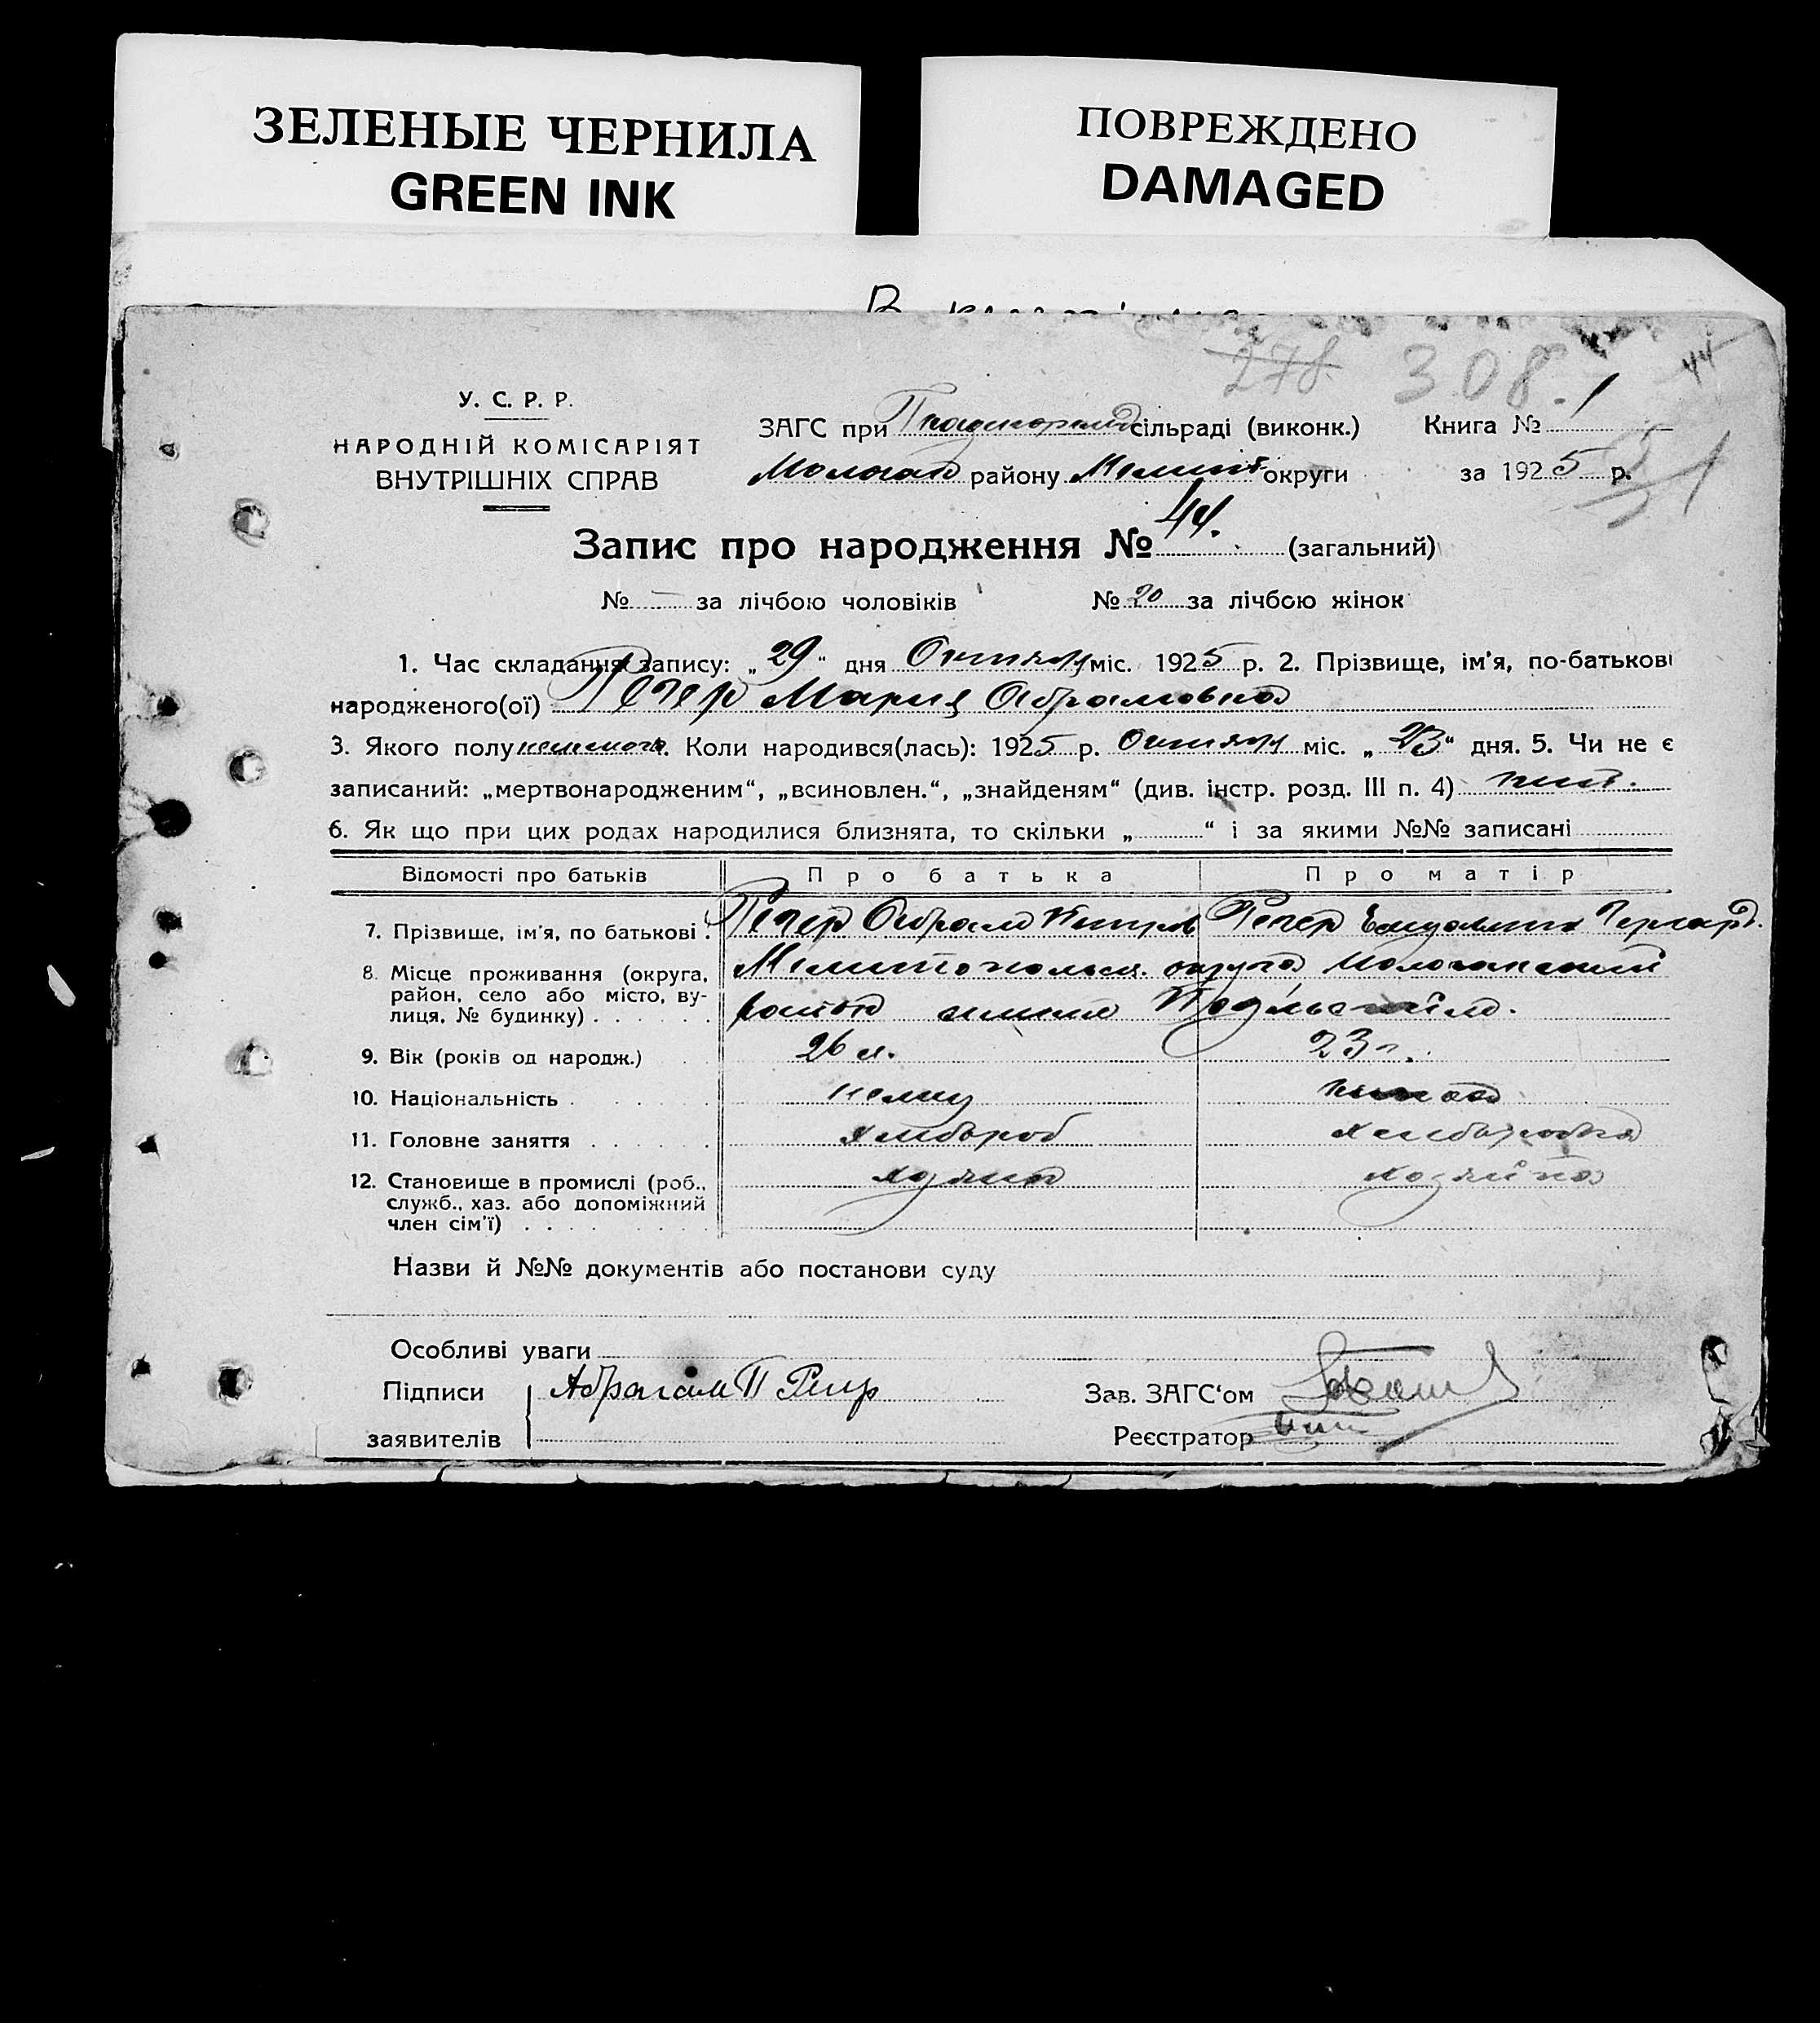 ЗЕЛЕНЫЕ ЧЕРНИЛА
GREEN INK
ПОВРЕЖДЕНО
DAMAGED
278 308.
44
У. С. Р. Р.
НАРОДНІЙ КОМІСАРІЯТ
ВНУТРІШНІХ СПРАВ
ЗАГС при сільраді (виконк.) Книга № 1
Молочан району Мелит округи за 1925 р.
Запис про народження № 44. (загальний)
№ — за лічбою чоловіків № 20 за лічбою жінок
1. Час складання запису: „29" дня Октября міс. 1925 р. 2. Прізвище, ім'я, по-батькові
народженого(ої) Регер Мария Абрамовна
3. Якого полу женского. Коли народився(лась): 1925 р. Октября міс. „23" дня. 5. Чи не є
записаний: „мертвонародженим", „всиновлен.", „знайденям" (див. інстр. розд. III п. 4) нет.
6. Як що при цих родах народилися близнята, то скільки „ " і за якими №№ записані
Відомості про батьків Про батька Про матір
7. Прізвище, ім'я, по батькові . Регер Абрам Петров Регер Герард.
8. Місце проживання (округа, район, село або місто, вулиця, № будинку) . . . . . . Мелитопольск. округа Молочанский
район
9. Вік (років од народж.) 26 л. 23 г.
10. Національність . . . . . немец немка
11. Головне заняття . . . . . . хлебороб хлеборобка
12. Становище в промислі (роб., служб., хаз. або допоміжний член сім'ї) . . . . . . хозяин хозяйка
Назви й №№ документів або постанови суду
Особливі уваги
Підписи Абрагам П Регер Зав. ЗАГС'ом
заявителів Реєстратор